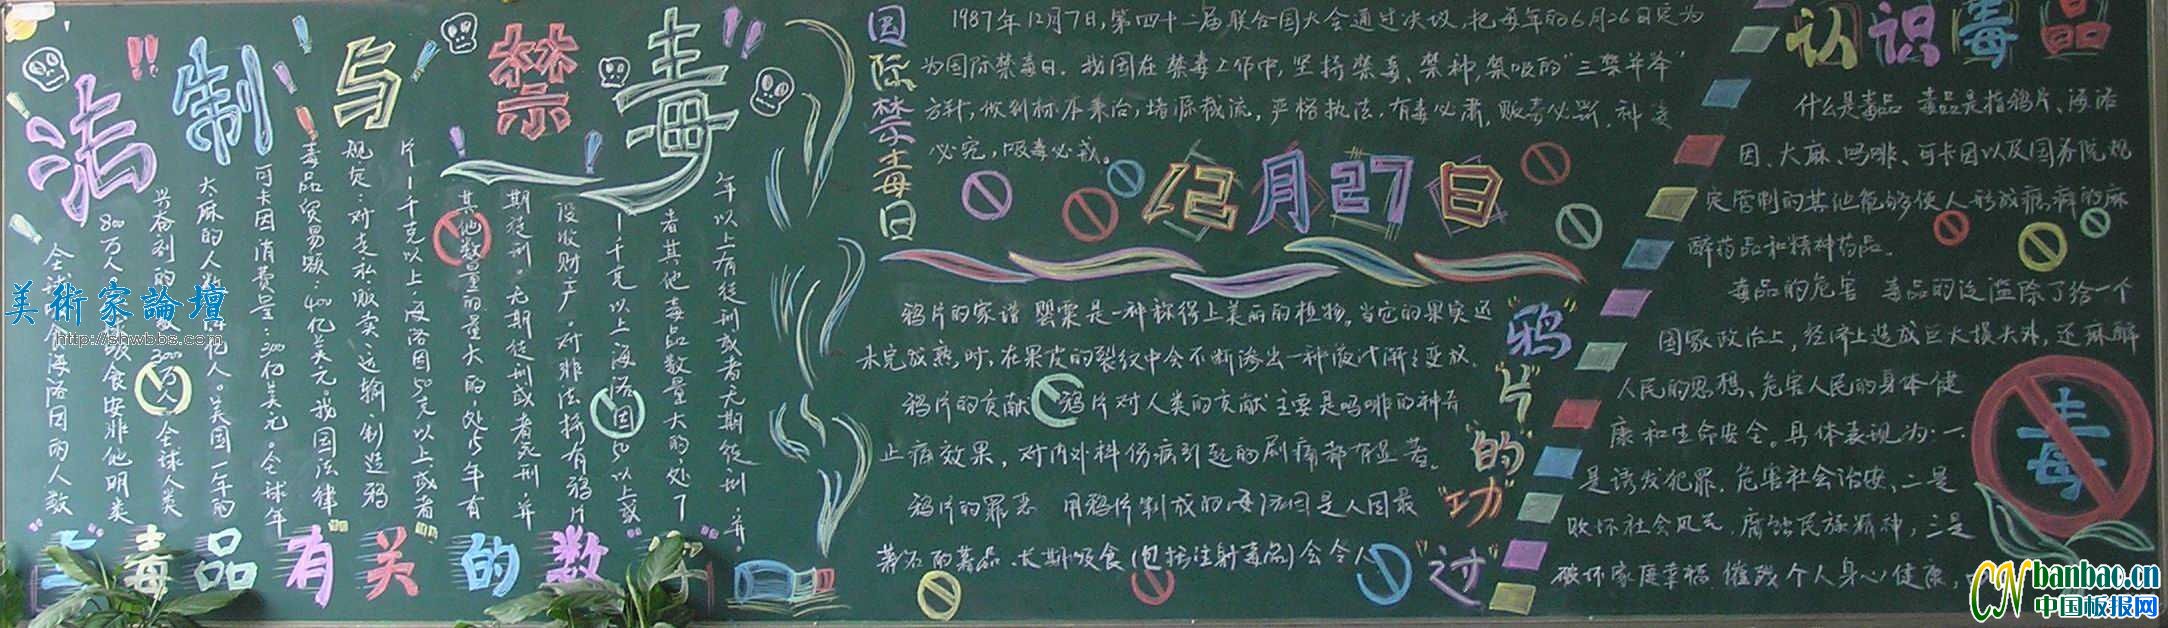 法制与禁毒
全球吸食海洛因的人数
800万人。吸食安非他明类
兴奋剂的人数3000万人。全球人类
大麻的人数 亿人。美国一年的
可卡因消费量:300亿美元。全球年
毒品贸易额:400亿美元。我国法律
规定:对走私、贩卖、运输、制造鸦
片一千克以上、海洛因50克以上或者
其他数量的量大的,处15年有
期徒刑。无期徒刑或者死刑,并
没收财产。对非法持有鸦片
一千克以上,海洛因50以上或
者其他毒品数量大的,处7
年以上有徒刑或者无期徒刑,并。
与毒品有关的数字
国际禁毒日
1987年12月7日,第四十二届联合国大会通过决议,把每年的6月26日定为
为国际禁毒日。我国在禁毒工作中,坚持禁毒、禁种,禁吸的"三禁并举"
方针,做到标本兼治,堵源截流,严格执法,有毒必肃,贩毒必罚,种造
必究,吸毒必戒。
12月27日
鸦片的家谱 罂粟是一种称得上美丽的植物。当它的果实还
未完成熟,时,在果皮的裂纹中会不断渗出一种液汁渐之变放.
鸦片的贡献 鸦片对人类的贡献主要是吗啡的神奇
止痛效果,对内外科伤病引起的剧痛都有显著。
鸦片的罪恶 用鸦片制成的海洛因是人因最
著名的毒品.长期吸食(包括注射毒品)会令人
"鸦片"的"功""过"
认识毒品
什么是毒品 毒品是指鸦片、海洛
因、大麻、吗啡、可卡因以及国务院规
定管制的其他能够使人形成瘾癖的麻
醉药品和精神药品.
毒品的危害 毒品的泛滥除了给一个
国家政治上,经济上造成巨大损失外,还麻醉
人民的思想、危害人民的身体健
康和生命安全。具体表现为:一
是诱发犯罪,危害社会治安、二是
败坏社会风气,腐蚀民族精神,三是
破坏家庭幸福 摧残个人身心健康,
毒
美術家論壇
http://shwbbs.com
CN banbao.cn
中国板报网